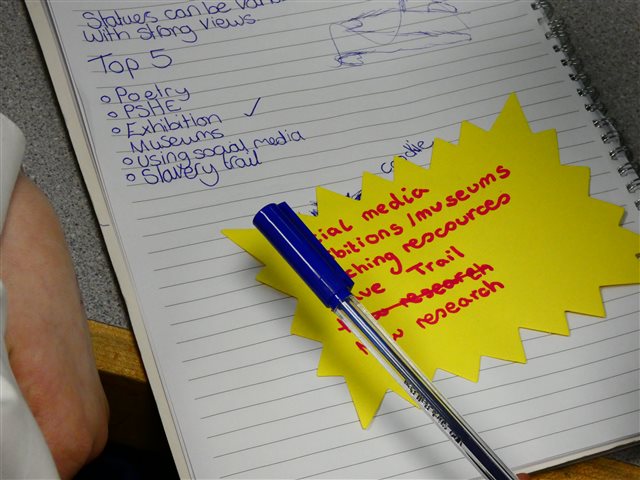 Statues can be
with strong views
Top 5
o Poetry
o PSHE
o Exhibition ✓
Museums
o using social media
o Slavery trail
cial media
bitions/museums
ching rescources
ve Trail
research
research